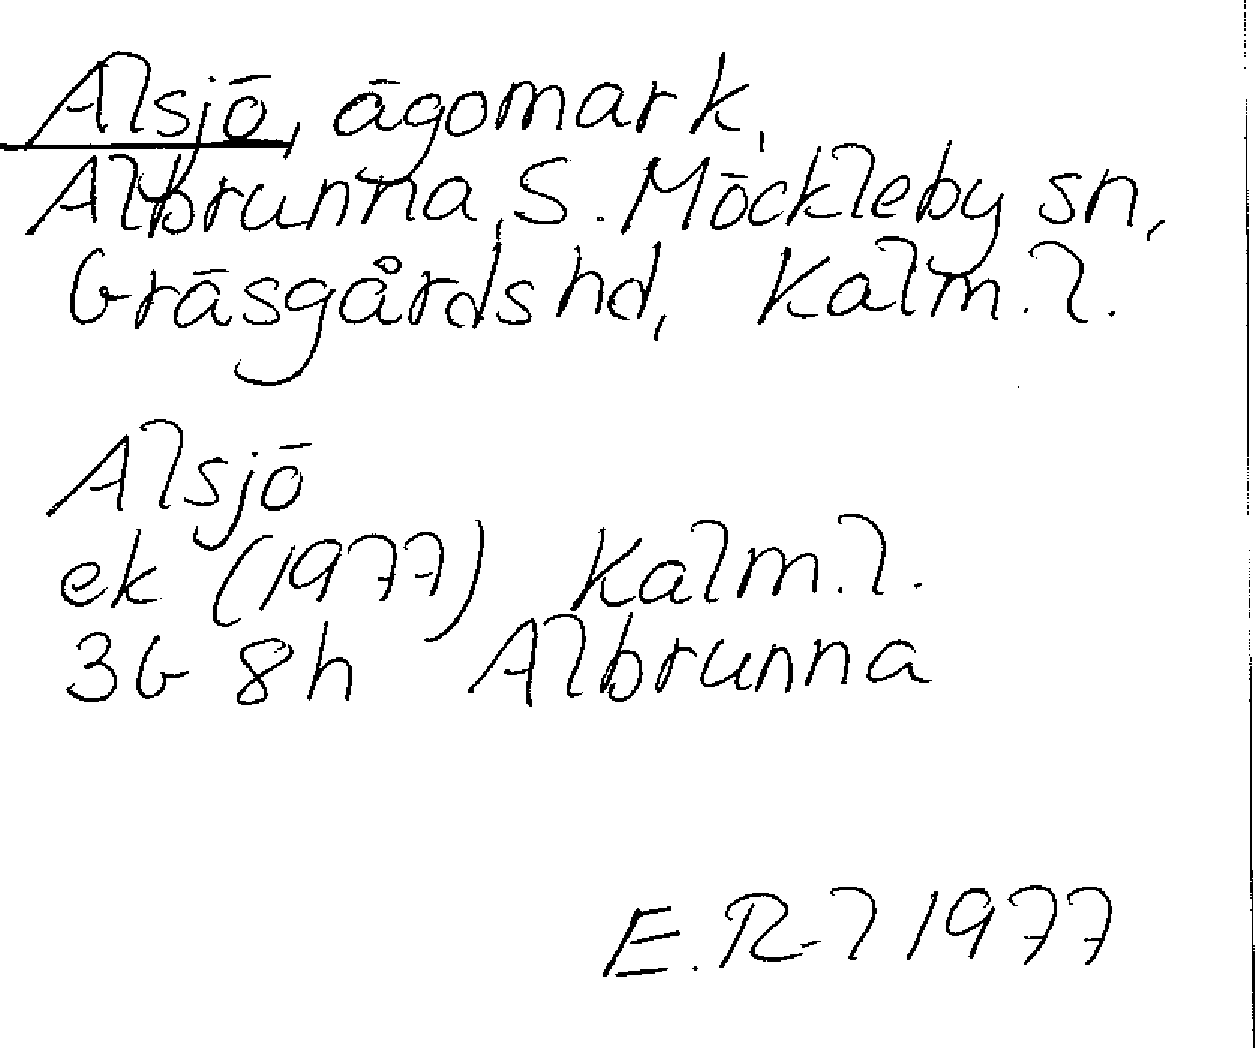 Alsjö, ägomark,
Albrunna, S. Möckleby sn,
Gräsgårds hd, Kalm. l.
Alsjö
ek (1977) Kalm. l.
3G 8h Albrunna
E. R-l 1977